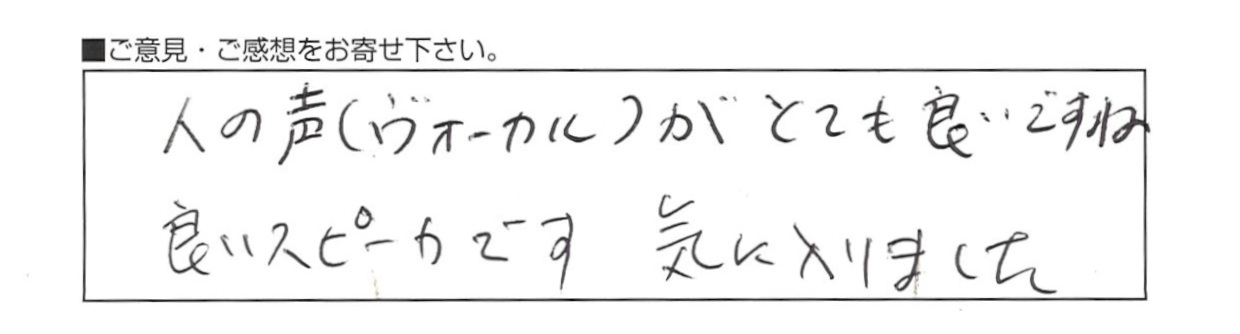 ■ご意見・ご感想をお寄せ下さい。
人の声(ヴォーカル)がとても良いですね
良いスピーカです 気に入りました